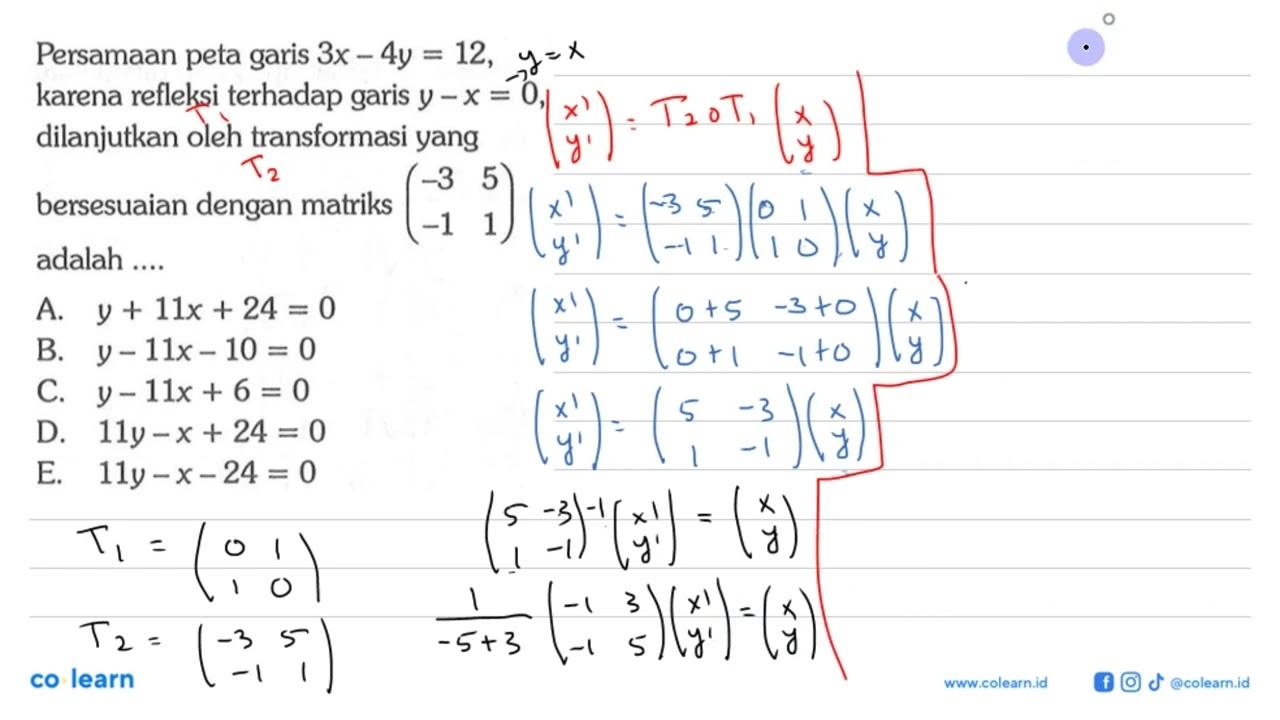 Persamaan peta garis 3x – 4y = 12,
y = x
karena refleksi terhadap garis y – x = 0,
T₁
dilanjutkan oleh transformasi yang
T₂
bersesuaian dengan matriks (–3 5; –1 1)
adalah ....
A. y + 11x + 24 = 0
B. y – 11x – 10 = 0
C. y – 11x + 6 = 0
D. 11y – x + 24 = 0
E. 11y – x – 24 = 0
T₁ = (0 1; 1 0)
T₂ = (-3 5; -1 1)
(x'; y') = T₂ o T₁ (x; y)
(x'; y') = (-3 5; -1 1)(0 1; 1 0)(x; y)
(x'; y') = (0+5 -3+0; 0+1 -1+0)(x; y)
(x'; y') = (5 -3; 1 -1)(x; y)
(5 -3; 1 -1)⁻¹ (x'; y') = (x; y)
1/(-5+3) (-1 3; -1 5)(x'; y') = (x; y)
co learn
www.colearn.id
@colearn.id